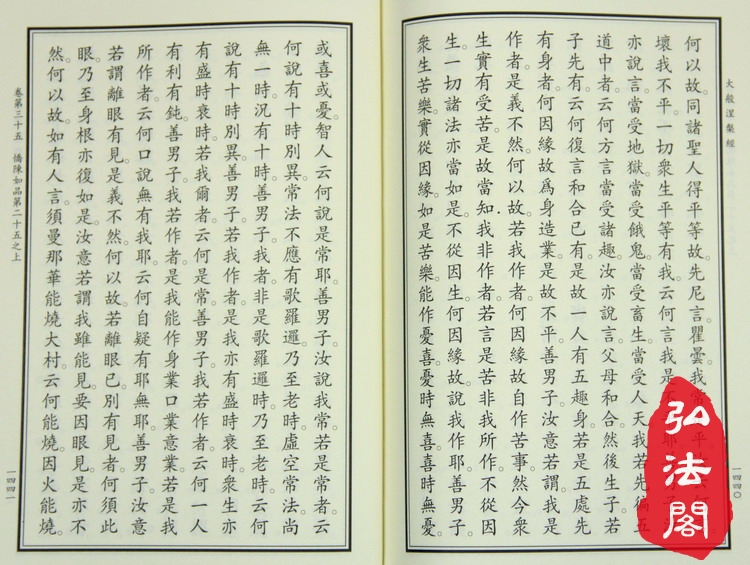 大般涅槃經
何以故。同諸聖人得平等故。先尼言。瞿曇。我
壞我不平。一切衆生平等有我。云何言我是不
亦說言當受地獄。當受餓鬼。當受畜生。當受人天。我若先徧五
道中者。云何方言當受諸趣。汝亦說言父母和合然後生子。若
子先有。云何復言和合已有。是故一人有五趣身。若是五處先
有身者。何因緣故爲身造業。是故不平。善男子。汝意若謂我是
作者。是義不然。何以故。若我作者。何因緣故自作苦事。然今衆
生實有受苦。是故當知。我非作者。若言是苦非我所作。不從因
生。一切諸法亦當如是。不從因生。何因緣故說我作耶。善男子。
衆生苦樂。實從因緣。如是苦樂能作憂喜。憂時無喜。喜時無憂。
一四四〇
弘法閣
或喜或憂。智人云何說是常耶。善男子。汝說我常。若是常者。云
何說有十時別異。常法不應有歌羅邏乃至老時。虛空常法尚
無一時。況有十時。善男子。我者非是歌羅邏時乃至老時。云何
說有十時別異。善男子。若我作者。是我亦有盛時衰時。衆生亦
有盛時衰時。若我爾者。云何是常。善男子。我若作者。云何一人
有利有鈍。善男子。我若作者。是我能作身業口業意業。若是我
所作者。云何口說無有我耶。云何自疑有耶無耶。善男子。汝意
若謂離眼有見。是義不然。何以故。若離眼已別有見者。何須此
眼。乃至身根亦復如是。汝意若謂我雖能見。要因眼見。是亦不
然。何以故。如有人言。須曼那華能燒大村。云何能燒。因火能燒。
卷第三十五 憍陳如品第二十五之上
一四四一